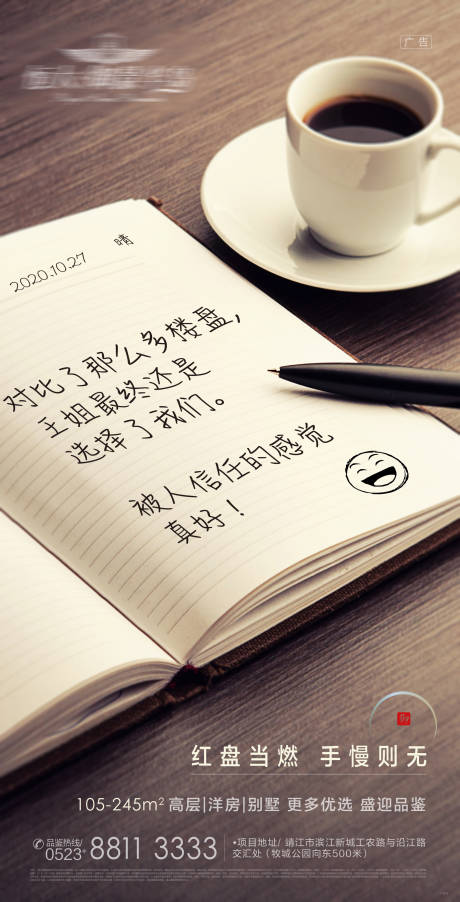 广告
2020.10.27 晴
对比了那么多楼盘,
王姐最终还是
选择了我们。
被人信任的感觉
真好!
红盘当燃 手慢则无
105-245m² 高层|洋房|别墅 更多优选 盛迎品鉴
品鉴热线/
0523 8811 3333
•项目地址/ 靖江市滨江新城工农路与沿江路
交汇处（牧城公园向东500米）